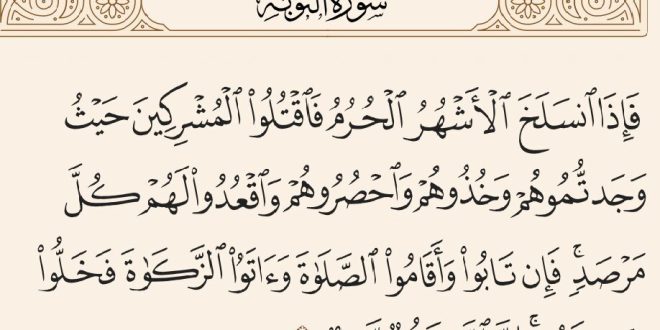 سورة التوبة
فَإِذَا ٱنسَلَخَ ٱلْأَشْهُرُ ٱلْحُرُمُ فَٱقْتُلُوا۟ ٱلْمُشْرِكِينَ حَيْثُ
وَجَدتُّمُوهُمْ وَخُذُوهُمْ وَٱحْصُرُوهُمْ وَٱقْعُدُوا۟ لَهُمْ كُلَّ
مَرْصَدٍۚ فَإِن تَابُوا۟ وَأَقَامُوا۟ ٱلصَّلَوٰةَ وَءَاتَوُا۟ ٱلزَّكَوٰةَ فَخَلُّوا۟